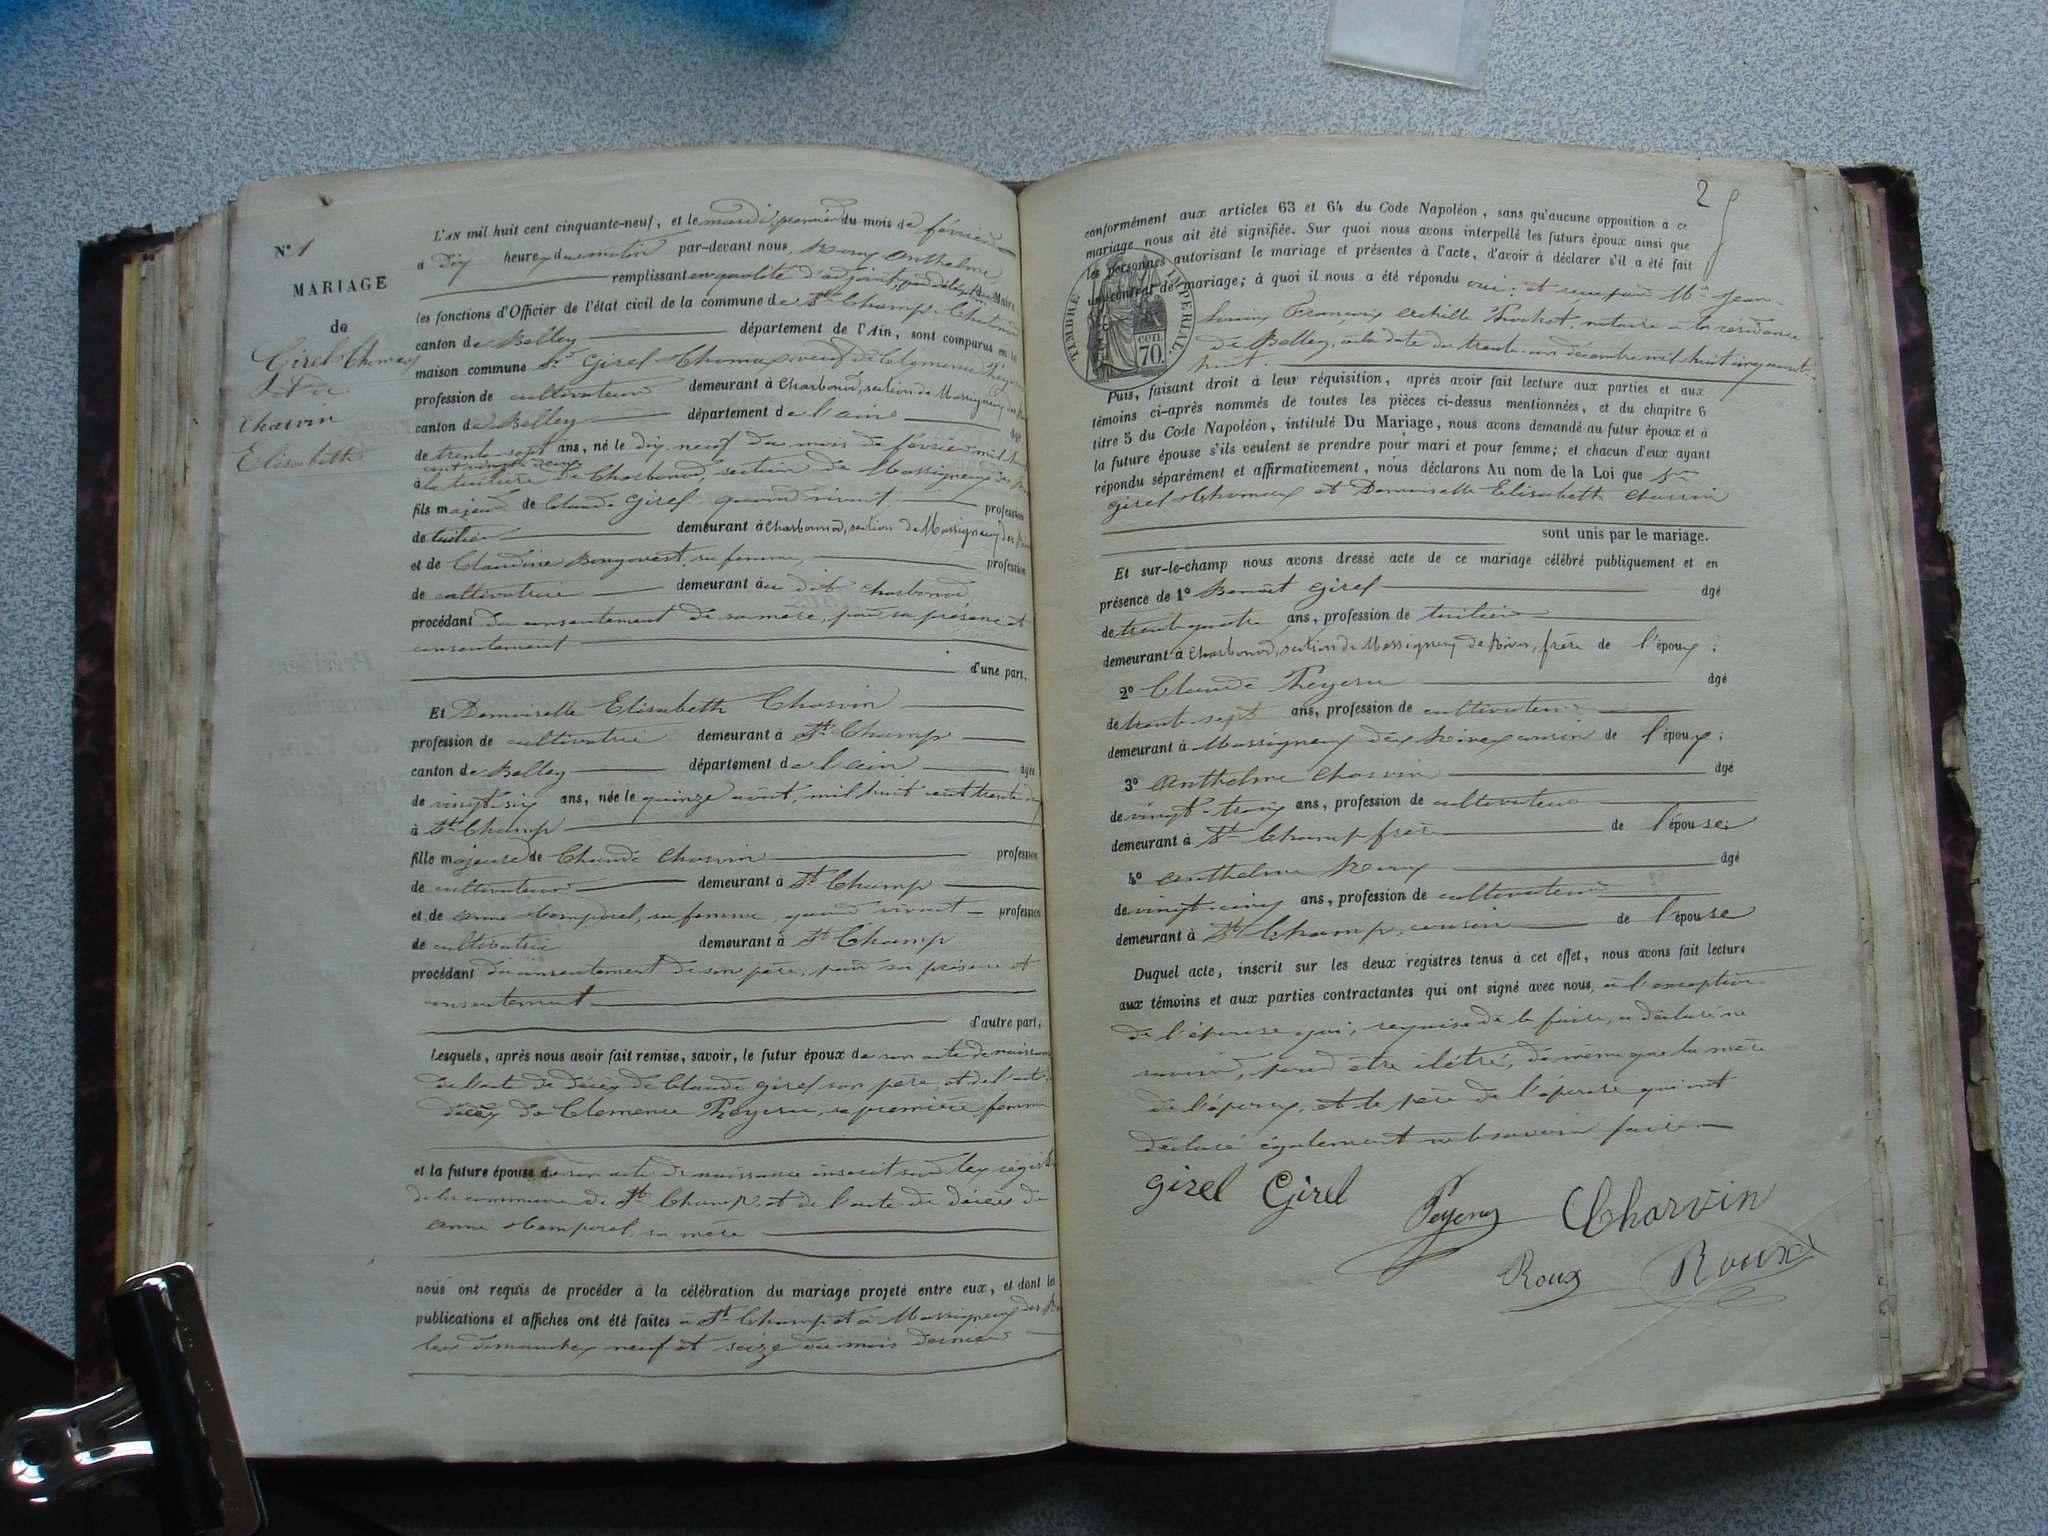 N° 1
MARIAGE
de
Girel Thomas
Et de
Charvin
Elisabeth
L'AN mil huit cent cinquante-neuf, et le mardi premier du mois de février
à dix heures du matin par-devant nous, Roux Anthelme
remplissant en qualité d'adjoint, par délégation du Maire
les fonctions d'Officier de l'état civil de la commune de St Champ-Chatonod
canton de Belley département de l'Ain, sont comparus en la
maison commune Sr Girel Thomas, veuf de Clémence Peyeru
profession de cultivateur demeurant à Charbonod, section de Massigneux des Rives
canton de Belley département de l'ain âgé
de trente-sept ans, né le dix neuf du mois de février mil huit
cent vingt deux
à la tuilière de Charbonod, section de Massigneux des Rives
fils majeur de Claude Girel quand vivait profession
de tuilier demeurant à Charbonnod, section de Massigneux des Rives
et de Claudine sa femme, profession
de cultivatrice demeurant au dit Charbonod
procédant du consentement de sa mère, pour sa présence et
consentement
d'une part,
Et Demoiselle Elisabeth Charvin
profession de cultivatrice demeurant à St Champ
canton de Belley département de l'ain âgée
de vingt-six ans, née le quinze août, mil huit cent trente deux
à St Champ
fille majeure de Claude Charvin profession
de cultivateur demeurant à St Champ
et de anne Temporel, sa femme, quand vivait profession
de cultivatrice demeurant à St Champ
procédant du consentement de son père, pour sa présence et
consentement
d'autre part,
Lesquels, après nous avoir fait remise, savoir, le futur époux de son acte de naissance
de l'acte de décès de Claude Girel son père, et de l'acte de
décès de Clemence Peyeru, sa première femme
et la future épouse de son acte de naissance inscrit sur les régistres
de la commune de St Champ, et de l'acte de décès de
anne Temporel, sa mère
nous ont requis de procéder à la célébration du mariage projeté entre eux, et dont les
publications et affiches ont été faites à St Champ et à Massigneux des Rives
les dimanches neuf et seize du mois dernier
2
conformément aux articles 63 et 64 du Code Napoléon, sans qu'aucune opposition à ce
mariage nous ait été signifiée. Sur quoi nous avons interpellé les futurs époux ainsi que
les personnes autorisant le mariage et présentes à l'acte, d'avoir à déclarer s'il a été fait
un contrat de mariage; à quoi il nous a été répondu oui: et reçu par Me Jean-
Louis François Achille Trochet, notaire à la résidence
de Belley, à la date du trente-un décembre mil huit cinquante-
huit.
TIMBRE IMPÉRIAL.
70 cen.
Puis, faisant droit à leur réquisition, après avoir fait lecture aux parties et aux
témoins ci-après nommés de toutes les pièces ci-dessus mentionnées, et du chapitre 6
titre 5 du Code Napoléon, intitulé Du Mariage, nous avons demandé au futur époux et à
la future épouse s'ils veulent se prendre pour mari et pour femme; et chacun d'eux ayant
répondu séparément et affirmativement, nous déclarons Au nom de la Loi que Sr
Girel Thomas et Demoiselle Elisabeth Charvin
sont unis par le mariage.
Et sur-le-champ nous avons dressé acte de ce mariage célébré publiquement et en
présence de 1° Benoît Girel âgé
de trente quatre ans, profession de tuilier
demeurant à Charbonod, section de Massigneux de Rives, frère de l'époux;
2° Claude Peyeru âgé
de trente-sept ans, profession de cultivateur
demeurant à Massigneux des Rives cousin de l'époux;
3° Anthelme Charvin âgé
de vingt-trois ans, profession de cultivateur
demeurant à St Champ frère de l'épouse;
4° Anthelme Roux âgé
de vingt-cinq ans, profession de cultivateur
demeurant à St Champ, cousin de l'épouse
Duquel acte, inscrit sur les deux registres tenus à cet effet, nous avons fait lecture
aux témoins et aux parties contractantes qui ont signé avec nous, à l'exception
de l'épouse qui, requise de le faire, a déclaré ne
savoir, pour être ilétré, de même que la mère
de l'époux, et le père de l'épouse qui ont
déclaré également ne le savoir faire
Girel Girel Peyeru Charvin
Roux Roux